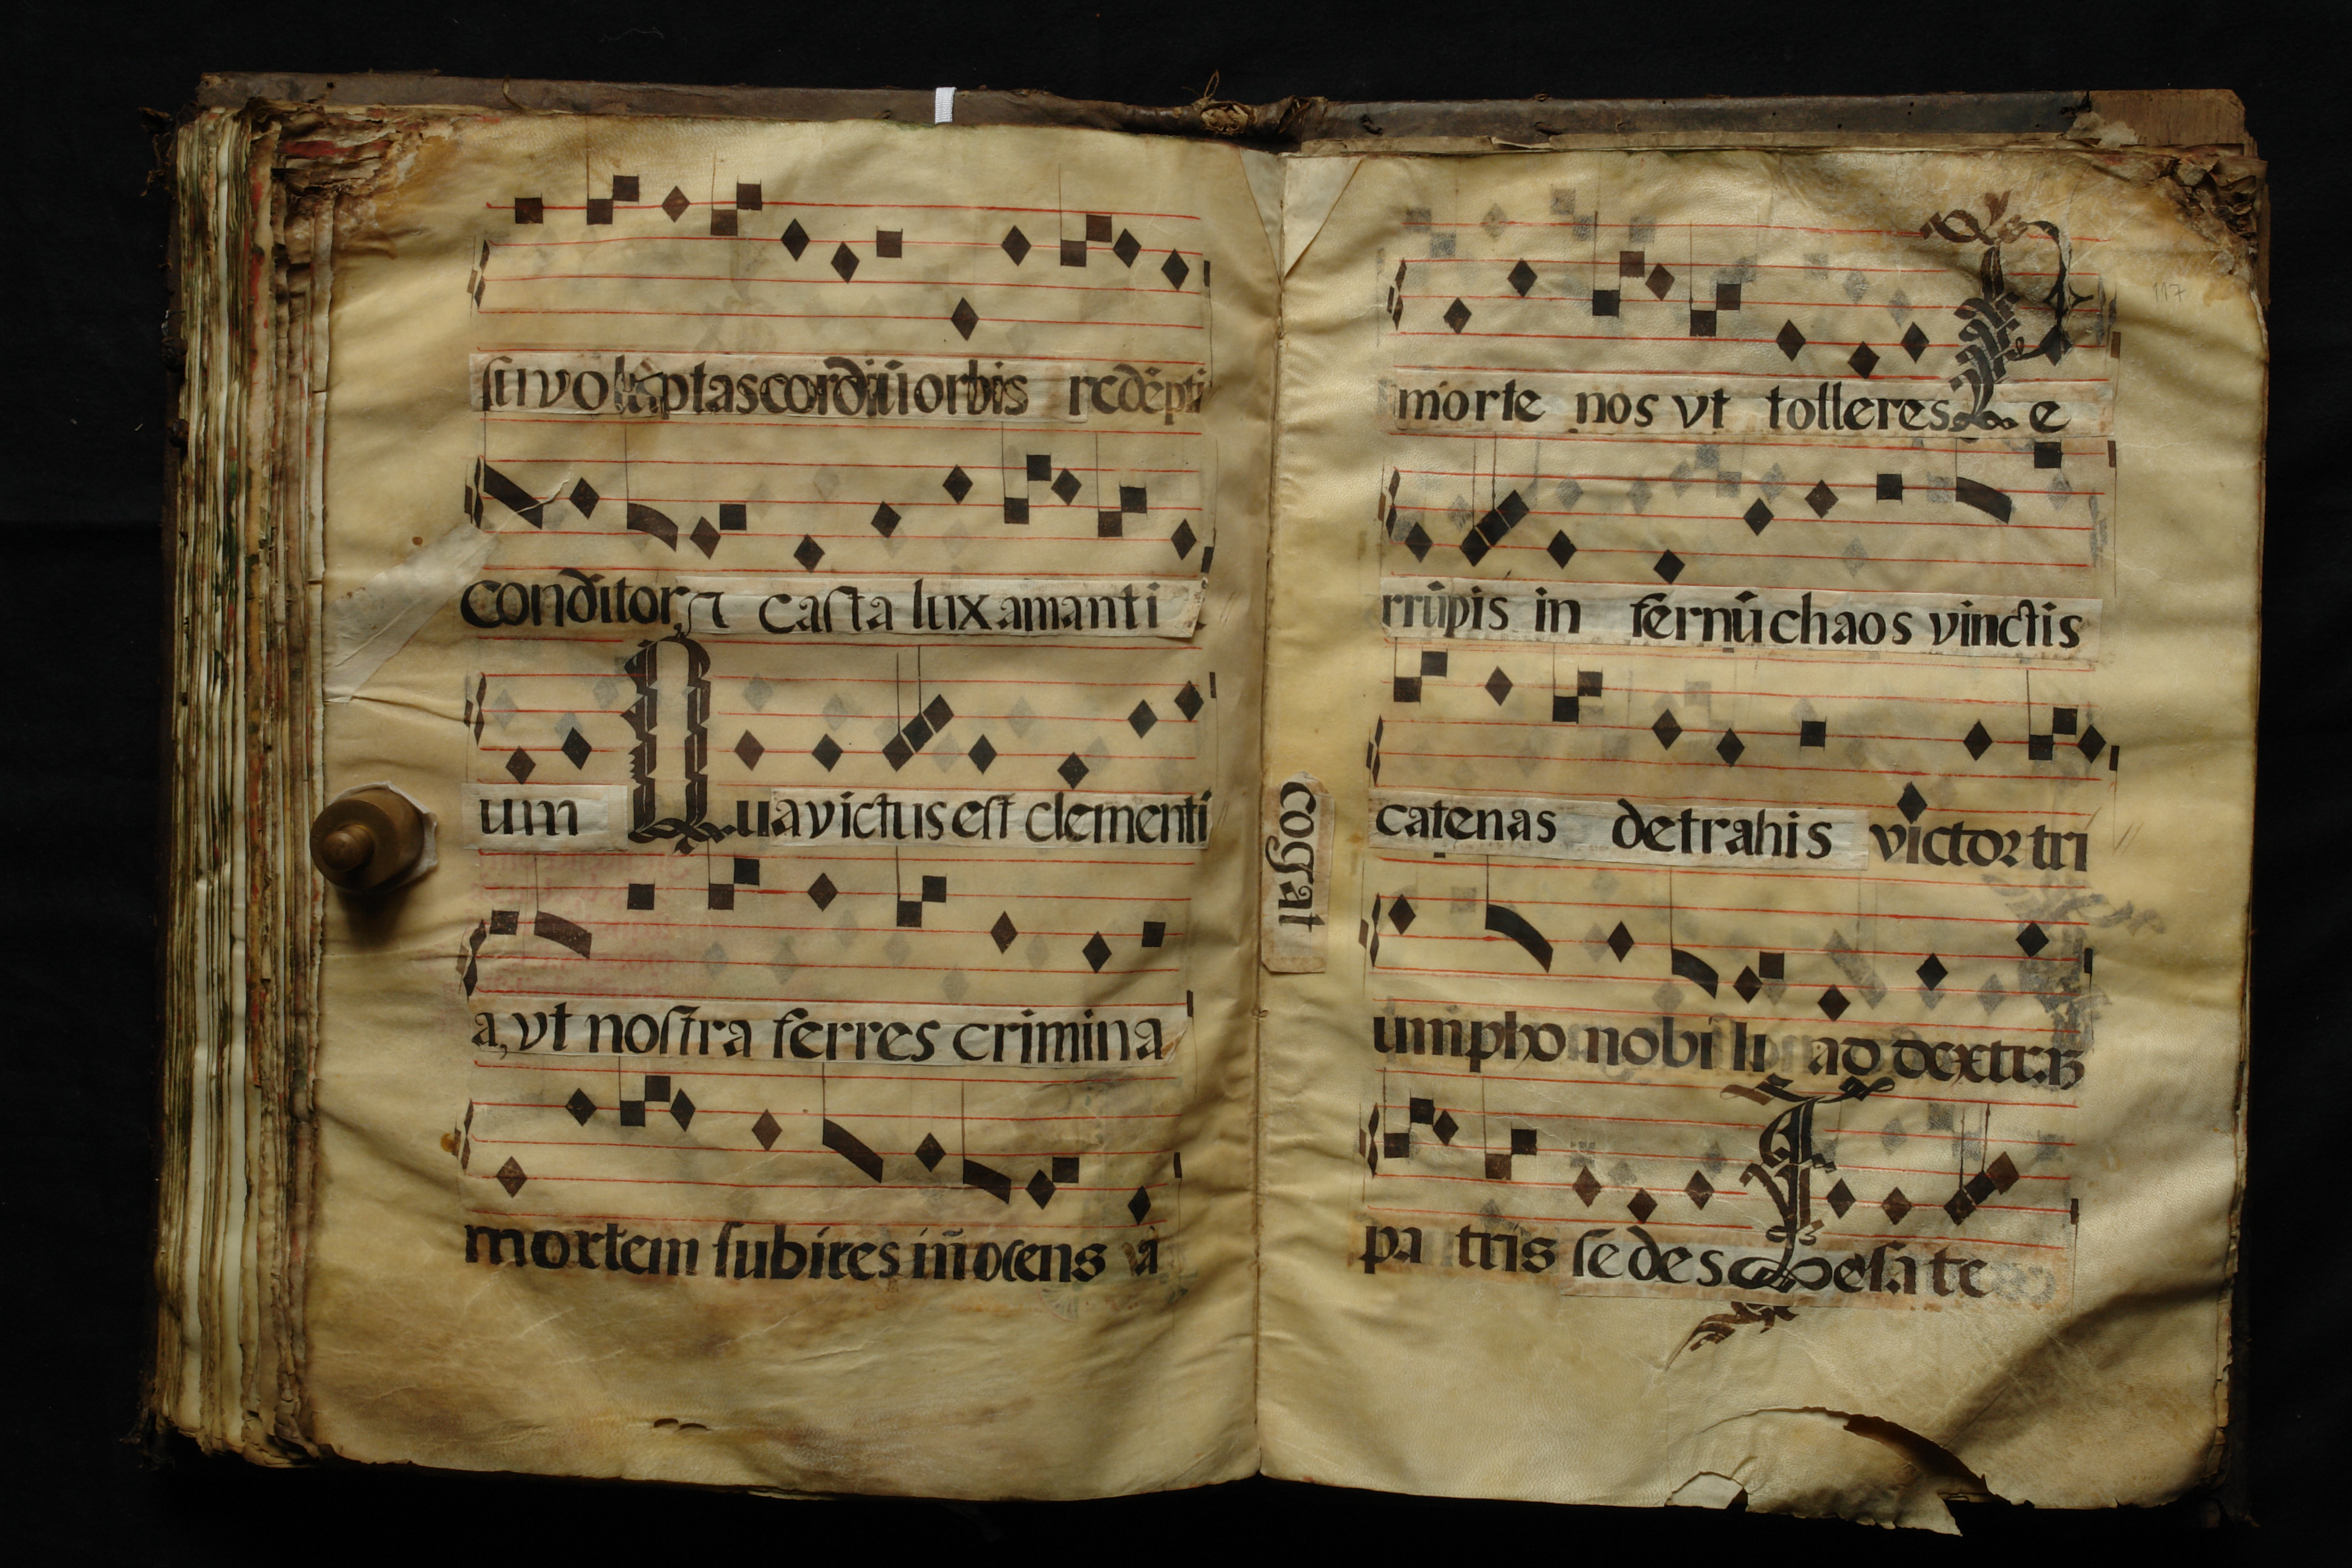 su voluptas cordiū orbis redēpti
conditor, et casta lux amanti
um Qua victus est clementi
a, vt nostra ferres crimina
mortem subires iñocens a
morte nos vt tolleres Pe
rrūpis in fernū chaos vinctis
catenas detrahis victor tri
umpho nobili ad dexterā
pa tris sedes Te sa te
cogat
117